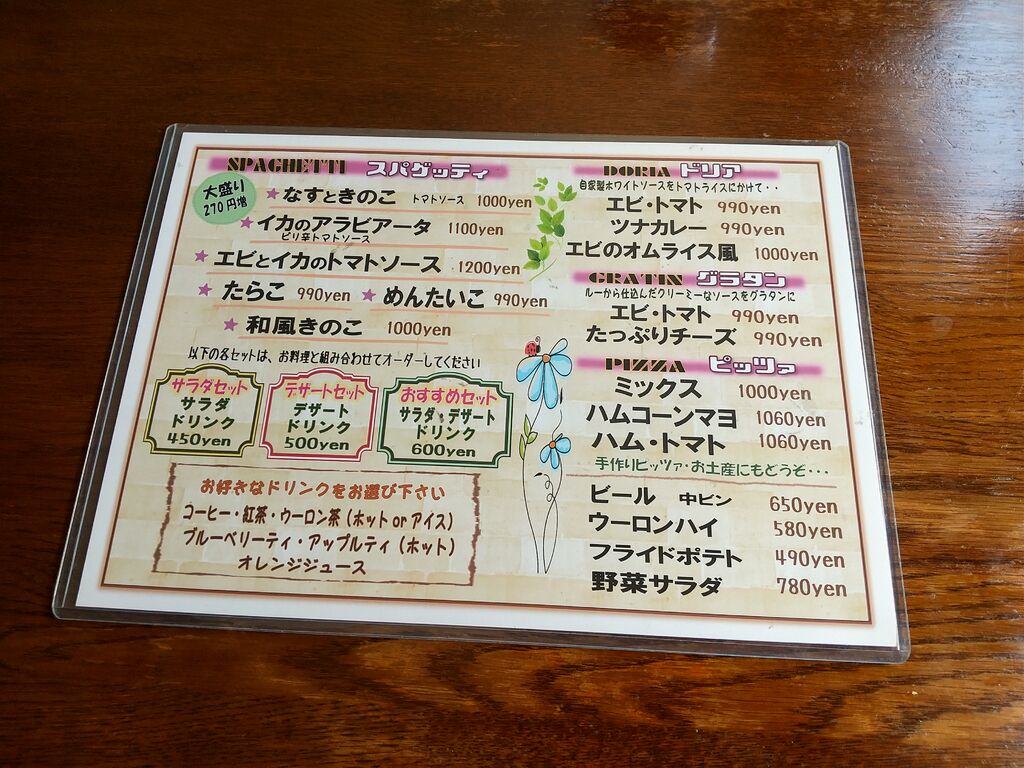 SPAGHETTI スパゲッティ
大盛り
270円増
★ なすときのこ トマトソース 1000yen
★ イカのアラビアータ 1100yen
ピリ辛トマトソース
★ エビとイカのトマトソース 1200yen
★ たらこ 990yen ★ めんたいこ 990yen
★ 和風きのこ 1000yen
以下の各セットは、お料理と組み合わせてオーダーしてください
サラダセット
サラダ
ドリンク
450yen
デザートセット
デザート
ドリンク
500yen
おすすめセット
サラダ・デザート
ドリンク
600yen
お好きなドリンクをお選び下さい
コーヒー・紅茶・ウーロン茶(ホット or アイス)
ブルーベリーティ・アップルティ(ホット)
オレンジジュース
DORIA ドリア
自家製ホワイトソースをトマトライスにかけて・・
エビ・トマト 990yen
ツナカレー 990yen
エビのオムライス風 1000yen
GRATIN グラタン
ルーから仕込んだクリーミーなソースをグラタンに
エビ・トマト 990yen
たっぷりチーズ 990yen
PIZZA ピッツァ
ミックス 1000yen
ハムコーンマヨ 1060yen
ハム・トマト 1060yen
手作りピッツァ・お土産にもどうぞ・・・
ビール 中ビン 650yen
ウーロンハイ 580yen
フライドポテト 490yen
野菜サラダ 780yen